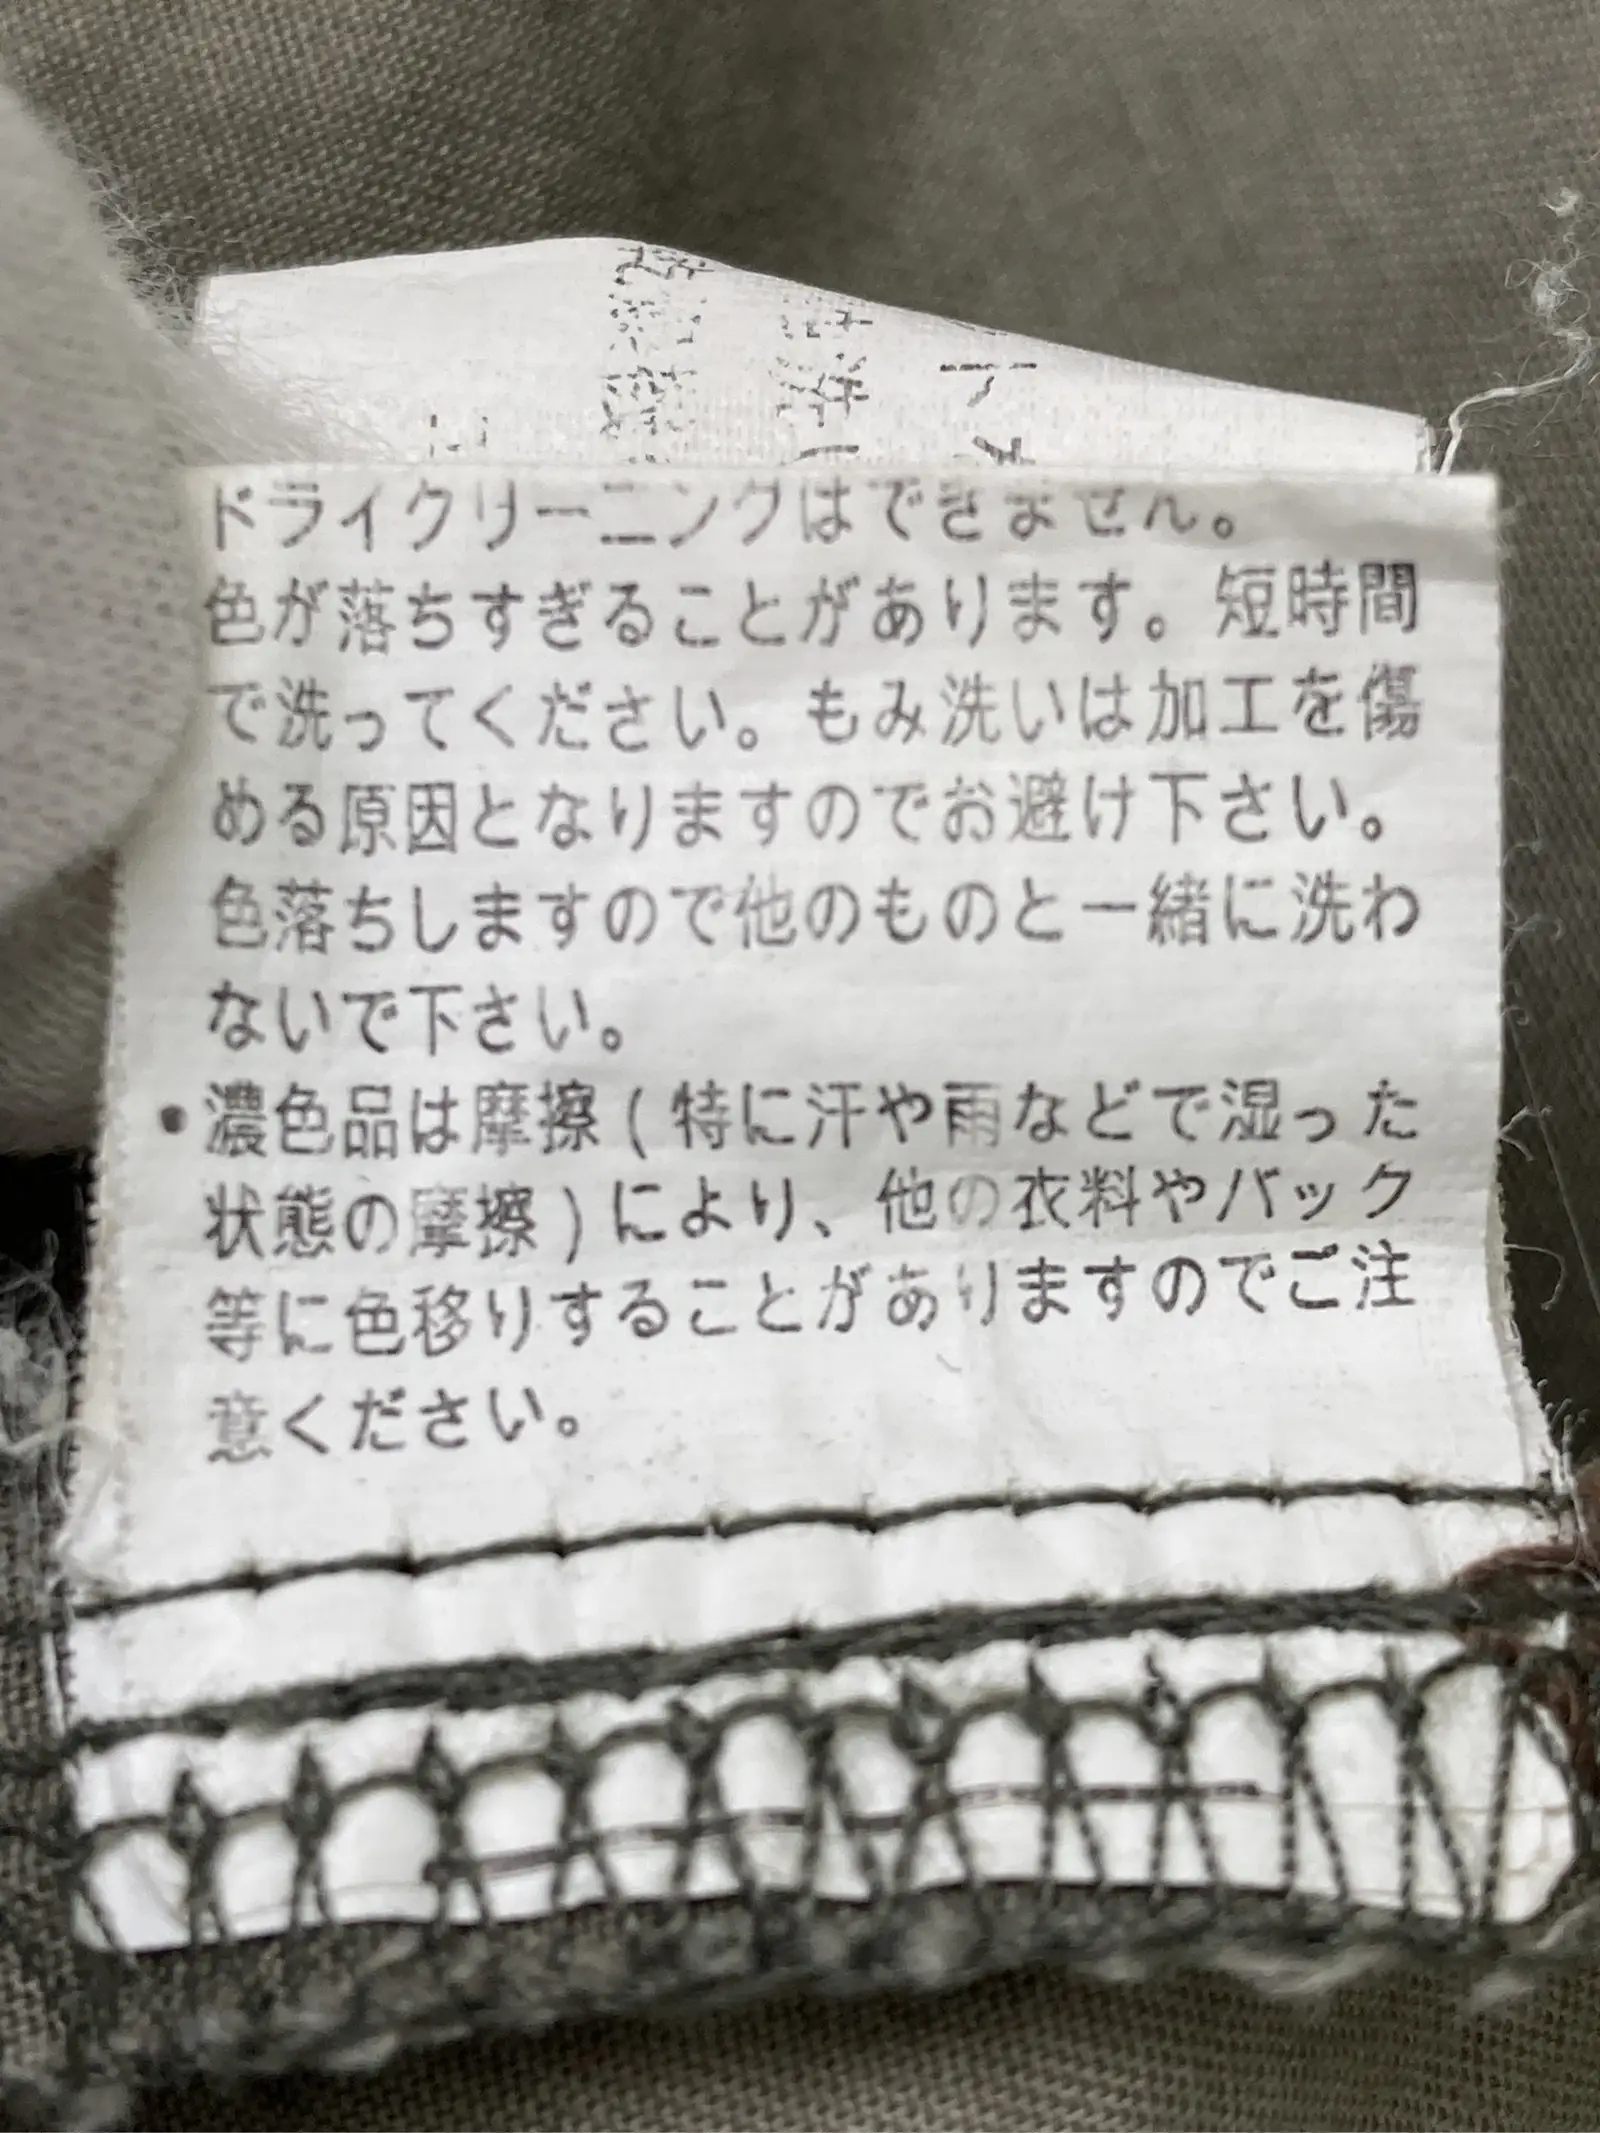 ドライクリーニングはできません。
色が落ちすぎることがあります。短時間
で洗ってください。もみ洗いは加工を傷
める原因となりますのでお避け下さい。
色落ちしますので他のものと一緒に洗わ
ないで下さい。
•濃色品は摩擦(特に汗や雨などで湿った
状態の摩擦)により、他の衣料やバック
等に色移りすることがありますのでご注
意ください。